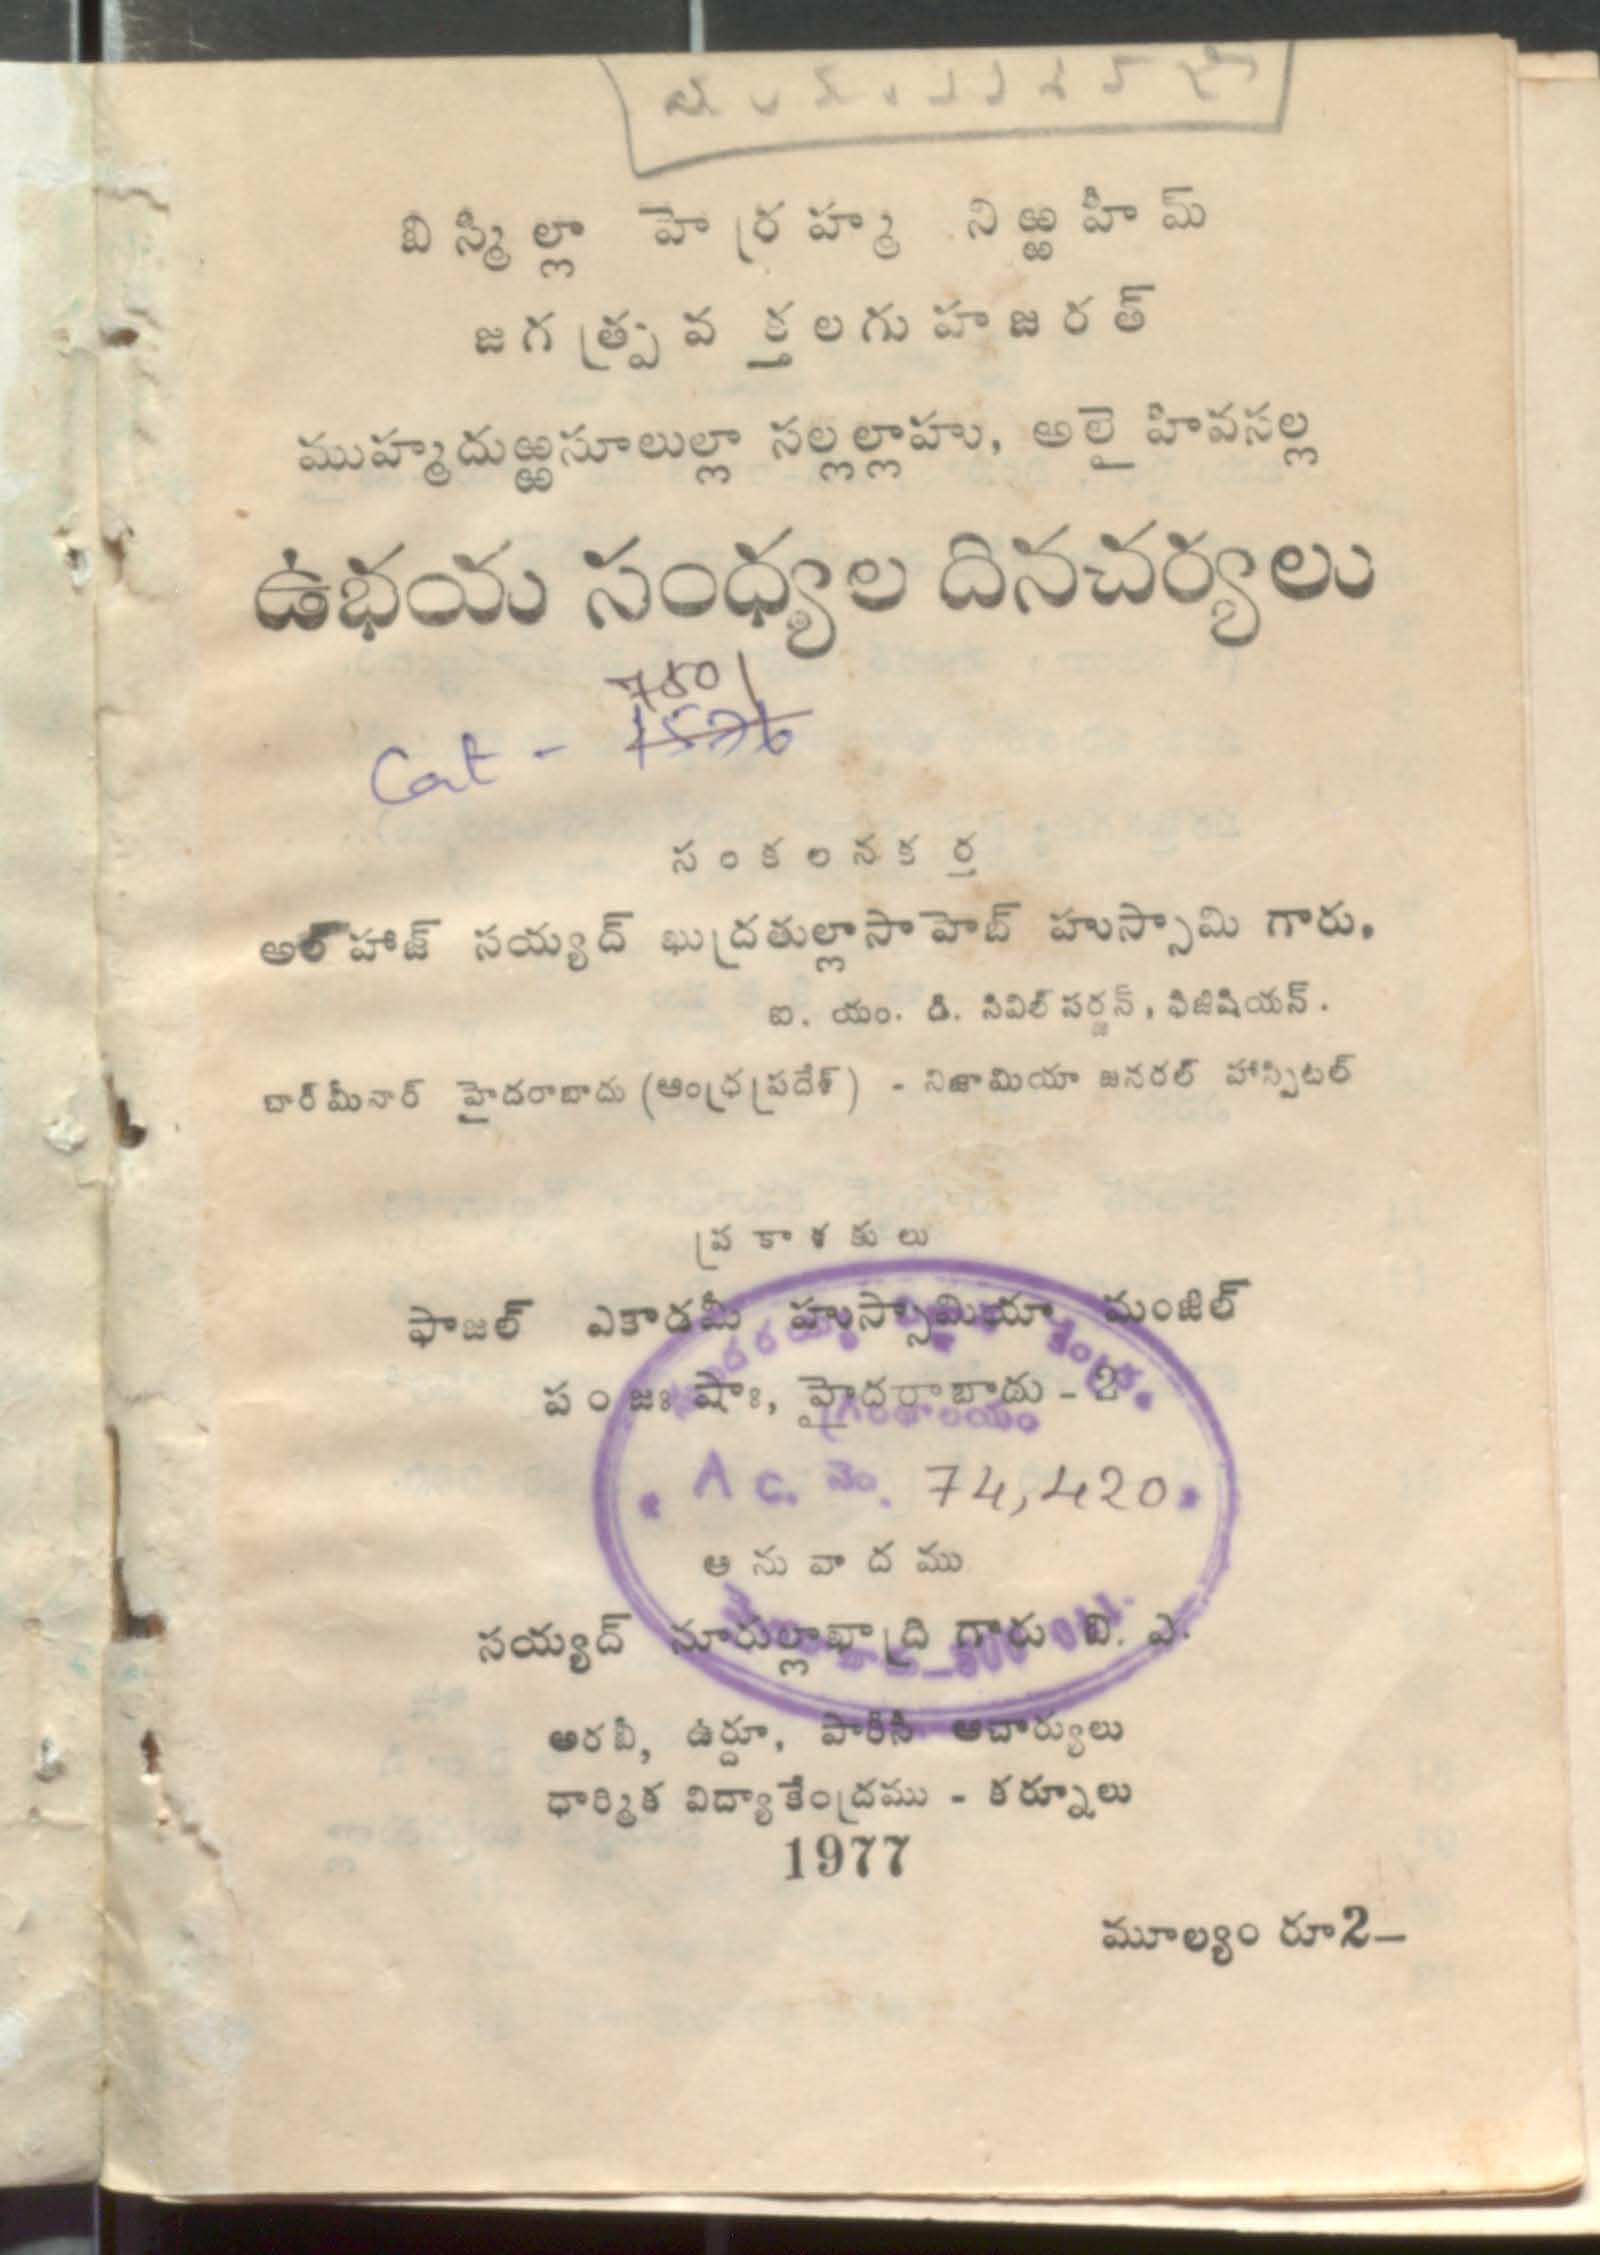 బిస్మిల్లా హెర్రహ్మ నిఱ్ఱహీమ్
జగత్ప్రవక్తలగు హజరత్
ముహ్మదుఱ్ఱసూలుల్లా సల్లల్లాహు, అలైహివసల్ల
ఉభయ సంధ్యల దినచర్యలు
7801
Cat - 1576
సంకలనకర్త
అల్‌హాజ్ సయ్యద్ ఖుద్రతుల్లాసాహెబ్ హుస్సామి గారు.
ఐ. యం. డి. సివిల్ సర్జన్, ఫిజిషియన్.
చార్‌మీనార్ హైదరాబాదు (ఆంధ్రప్రదేశ్) - నిజామియా జనరల్ హాస్పిటల్
ప్రకాశకులు
ఫాజల్ ఎకాడమీ హుస్సామియా మంజిల్
పంజః షాః, హైదరాబాదు - 2
గ్రంథాలయం
Ac. నెం. 74,420
అనువాదము
సయ్యద్ నూరుల్లాఖాద్రి గారు బి. ఎ.
అరబీ, ఉర్దూ, పారిసీ ఆచార్యులు
ధార్మిక విద్యాకేంద్రము - కర్నూలు
1977
మూల్యం రూ2–